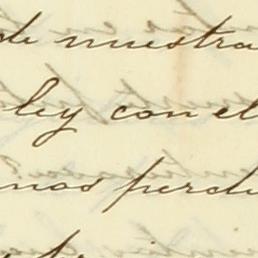 de nuestra
ley con el
nos perdu